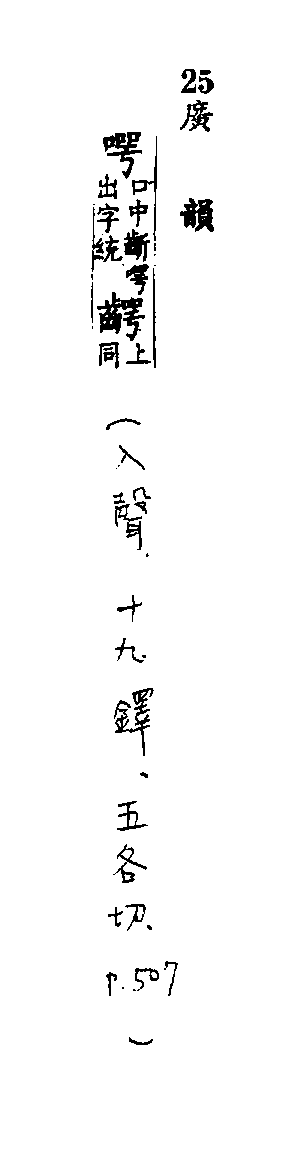 25
廣韻
㗁口中斷㗁出字統 齶上同
(入聲、十九鐸、五各切、p.507)